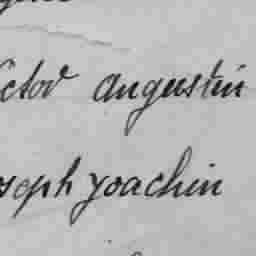 ctor augustin
oseph yoachin